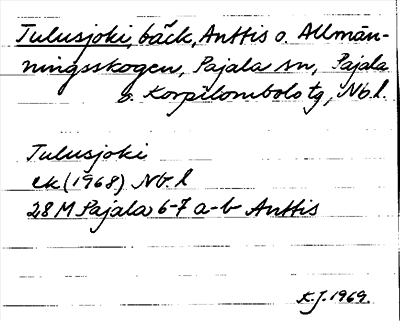 Tulusjoki, bäck, Anttis o. Allmän-
ningsskogen, Pajala sn, Pajala
o. Korpilombolo tg, Nb. l.
Tulusjoki
ek (1968) Nb. l
28 M Pajala 6-7 a-b Anttis
K.J. 1969.